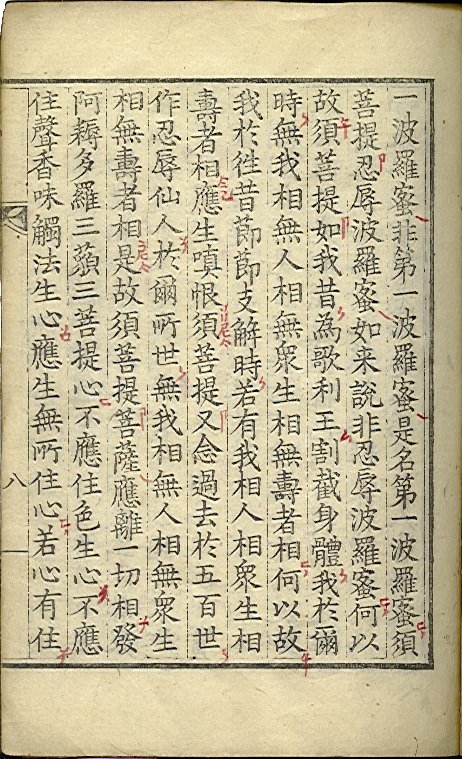 一波羅蜜非第一波羅蜜是名第一波羅蜜須
菩提忍辱波羅蜜如来說非忍辱波羅蜜何以
故須菩提如我昔為歌利王割截身體我於爾
時無我相無人相無衆生相無壽者相何以故
我於徃昔莭莭支解時若有我相人相衆生相
壽者相應生嗔恨須菩提又念過去於五百世
作忍辱仙人於爾所世無我相無人相無衆生
相無壽者相是故須菩提菩薩應離一切相發
阿耨多羅三藐三菩提心不應住色生心不應
住聲香味觸法生心應生無所住心若心有住
八